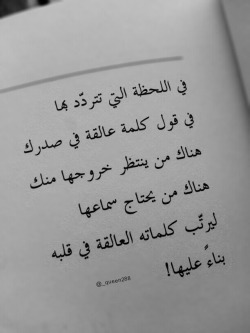 في اللحظة التي تتردّد بها
في قول كلمة عالقة في صدرك
هناك من ينتظر خروجها منك
هناك من يحتاج سماعها
ليرتّب كلماته العالقة في قلبه
بناءً عليها!